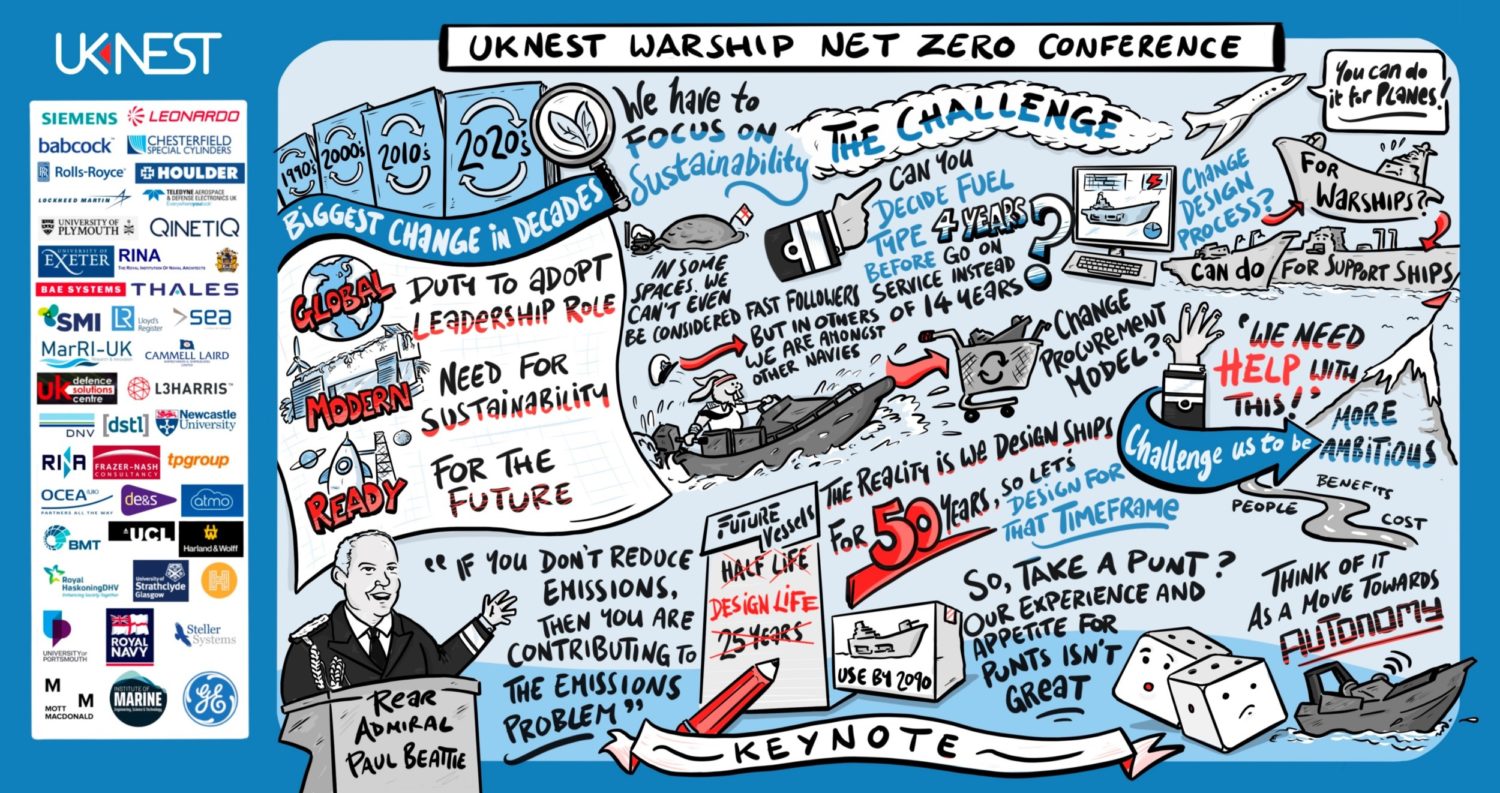 UKNEST
SIEMENS
LEONARDO
babcock™
CHESTERFIELD
SPECIAL CYLINDERS
Rolls-Royce
HOULDER
LOCKHEED MARTIN
TELEDYNE AEROSPACE
& DEFENSE ELECTRONICS UK
Everywhereyoulook
UNIVERSITY OF
PLYMOUTH
QINETIQ
UNIVERSITY OF
EXETER
RINA
THE ROYAL INSTITUTION OF NAVAL ARCHITECTS
BAE SYSTEMS
THALES
SMI
LR
Lloyd's
Register
sea
MarRI-UK
CAMMELL LAIRD
uk defence
solutions
centre
L3HARRIS™
DNV
[dstl]
Newcastle
University
RINA
FRAZER-NASH
CONSULTANCY
tpgroup
OCEA (UK)
PARTNERS ALL THE WAY
de&s
atmo
BMT
UCL
Harland & Wolff
Royal
HaskoningDHV
Enhancing Society Together
University of
Strathclyde
Glasgow
H
UNIVERSITY OF
PORTSMOUTH
ROYAL
NAVY
Steller
Systems
M
M
MOTT
MACDONALD
INSTITUTE OF
MARINE
Engineering, Science & Technology
GE
UKNEST WARSHIP NET ZERO CONFERENCE
1990's
2000's
2010's
2020's
BIGGEST CHANGE in DECADES
GLOBAL
DUTY TO ADOPT
LEADERSHIP ROLE
MODERN
NEED FOR
SUSTAINABILITY
READY
FOR THE
FUTURE
We have to
FOCUS ON
Sustainability
THE CHALLENGE
IN SOME
SPACES. WE
CAN'T EVEN
BE CONSIDERED FAST FOLLOWERS
BUT IN OTHERS
WE ARE AMONGST
OTHER NAVIES
CAN YOU
DECIDE FUEL
TYPE 4 YEARS
BEFORE GO ON
SERVICE INSTEAD
OF 14 YEARS?
You can do
it for PLANES!
CHANGE
DESIGN
PROCESS?
FOR
WARSHIPS?
CAN do
FOR SUPPORT SHIPS
CHANGE
PROCUREMENT
MODEL?
"WE NEED
HELP WITH
THIS!"
Challenge us to be
MORE
AMBITIOUS
PEOPLE
BENEFITS
COST
THE REALITY is WE DESIGN SHIPS
FOR 50 YEARS, SO LET'S
DESIGN FOR
THAT TIMEFRAME
FUTURE
VESSELS
HALF LIFE
DESIGN LIFE
25 YEARS
USE BY 2090
SO, TAKE A PUNT?
OUR EXPERIENCE AND
APPETITE FOR
PUNTS ISN'T
GREAT
THINK OF IT
AS A MOVE TOWARDS
AUTONOMY
"IF YOU DON'T REDUCE
EMISSIONS,
THEN YOU ARE
CONTRIBUTING TO
THE EMISSIONS
PROBLEM"
REAR
ADMIRAL
PAUL BEATTIE
KEYNOTE